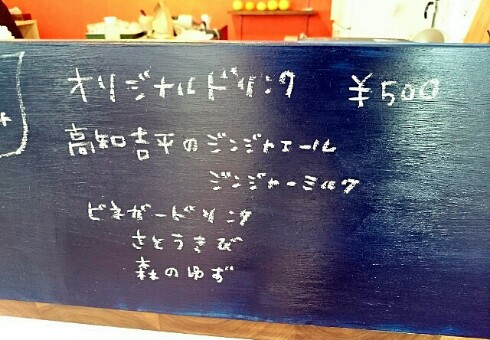 オリジナルドリンク ¥500
高知吉平のジンジャエール
ジンジャーミルク
ビネガードリンク
さとうきび
森のゆず